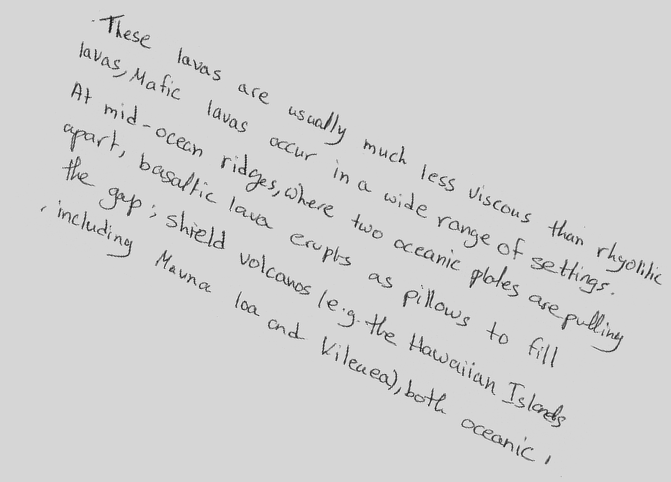 These lavas are usually much less viscous than rhyolilic
lavas, Mafic lavas occur in a wide range of settings.
At mid-ocean ridges, where two oceanic plates are pulling
apart, basaltic lava erupts as pillows to fill
the gap; shield volcanos (e.g. the Hawaiian Islands
, including Mauna loa and Kileuea), both oceanic,